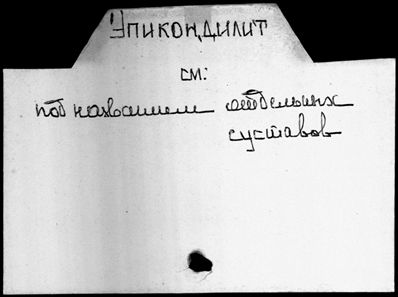 Эпикондилит
см:
под названием отдельных
суставов